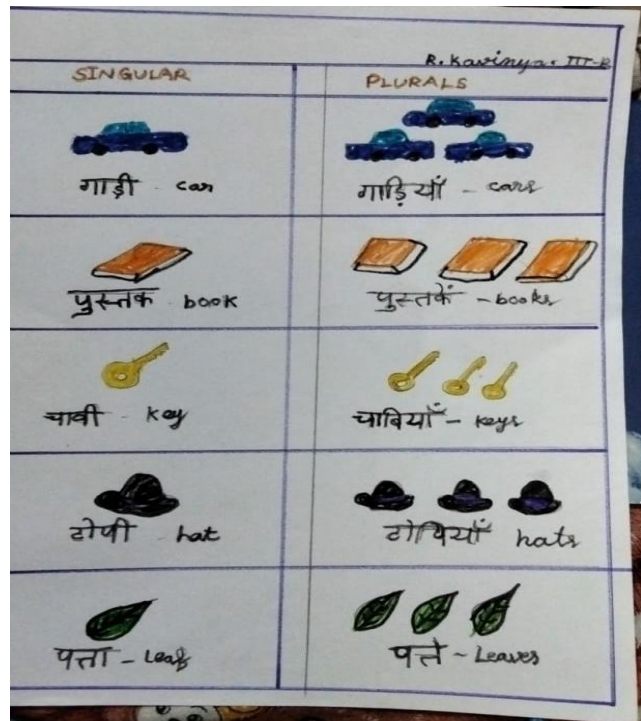 R. Kavinya. III-B
SINGULAR PLURALS
गाड़ी - car गाड़ियाँ - cars
पुस्तक book पुस्तकें - books
चावी - key चाबियाँ - keys
टोपी - hat टोपियाँ hats
पत्ता - Leaf पत्ते - Leaves